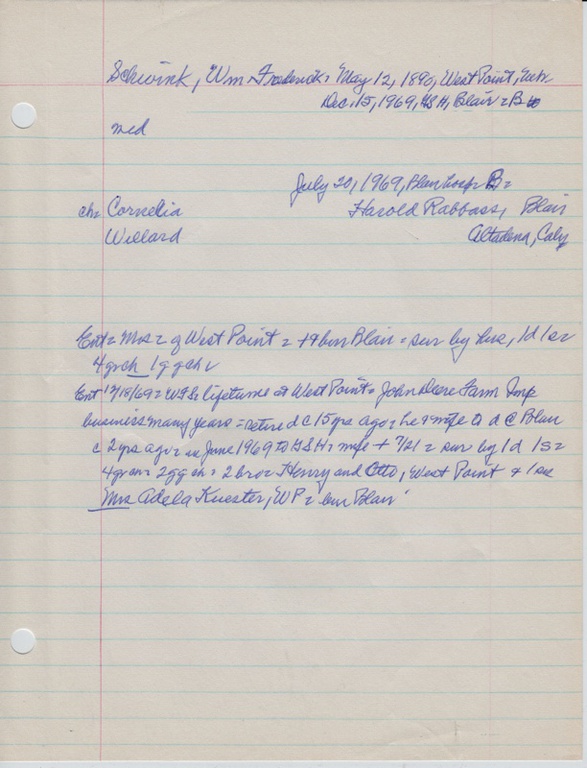 Schwink, Wm Frederick = May 12, 1890, West Point, Nebr.
Dec. 15, 1969, GSH, Blair = B
med
July 20, 1969, Blair hosp = B =
ch = Cornelia Harold Rabbass, Blair
Willard Altadena, Calif
Ent = Mrs = of West Point = + bur Blair = sur by hus, 1d 1s =
4 grch 1 ggch =
Ent 12/18/69 = WFS lifetime at West Point = John Deere Farm Imp
business many years = retired c 15 yrs ago = he & wife to Blair
c 2 yrs ago = in June 1969 to GSH = wife + 7/21 = sur by 1d 1s =
4 grch = 2 ggch = 2 bro = Henry and Otto, West Point & 1 sis
Mrs Adela Kuester, WP = bur Blair